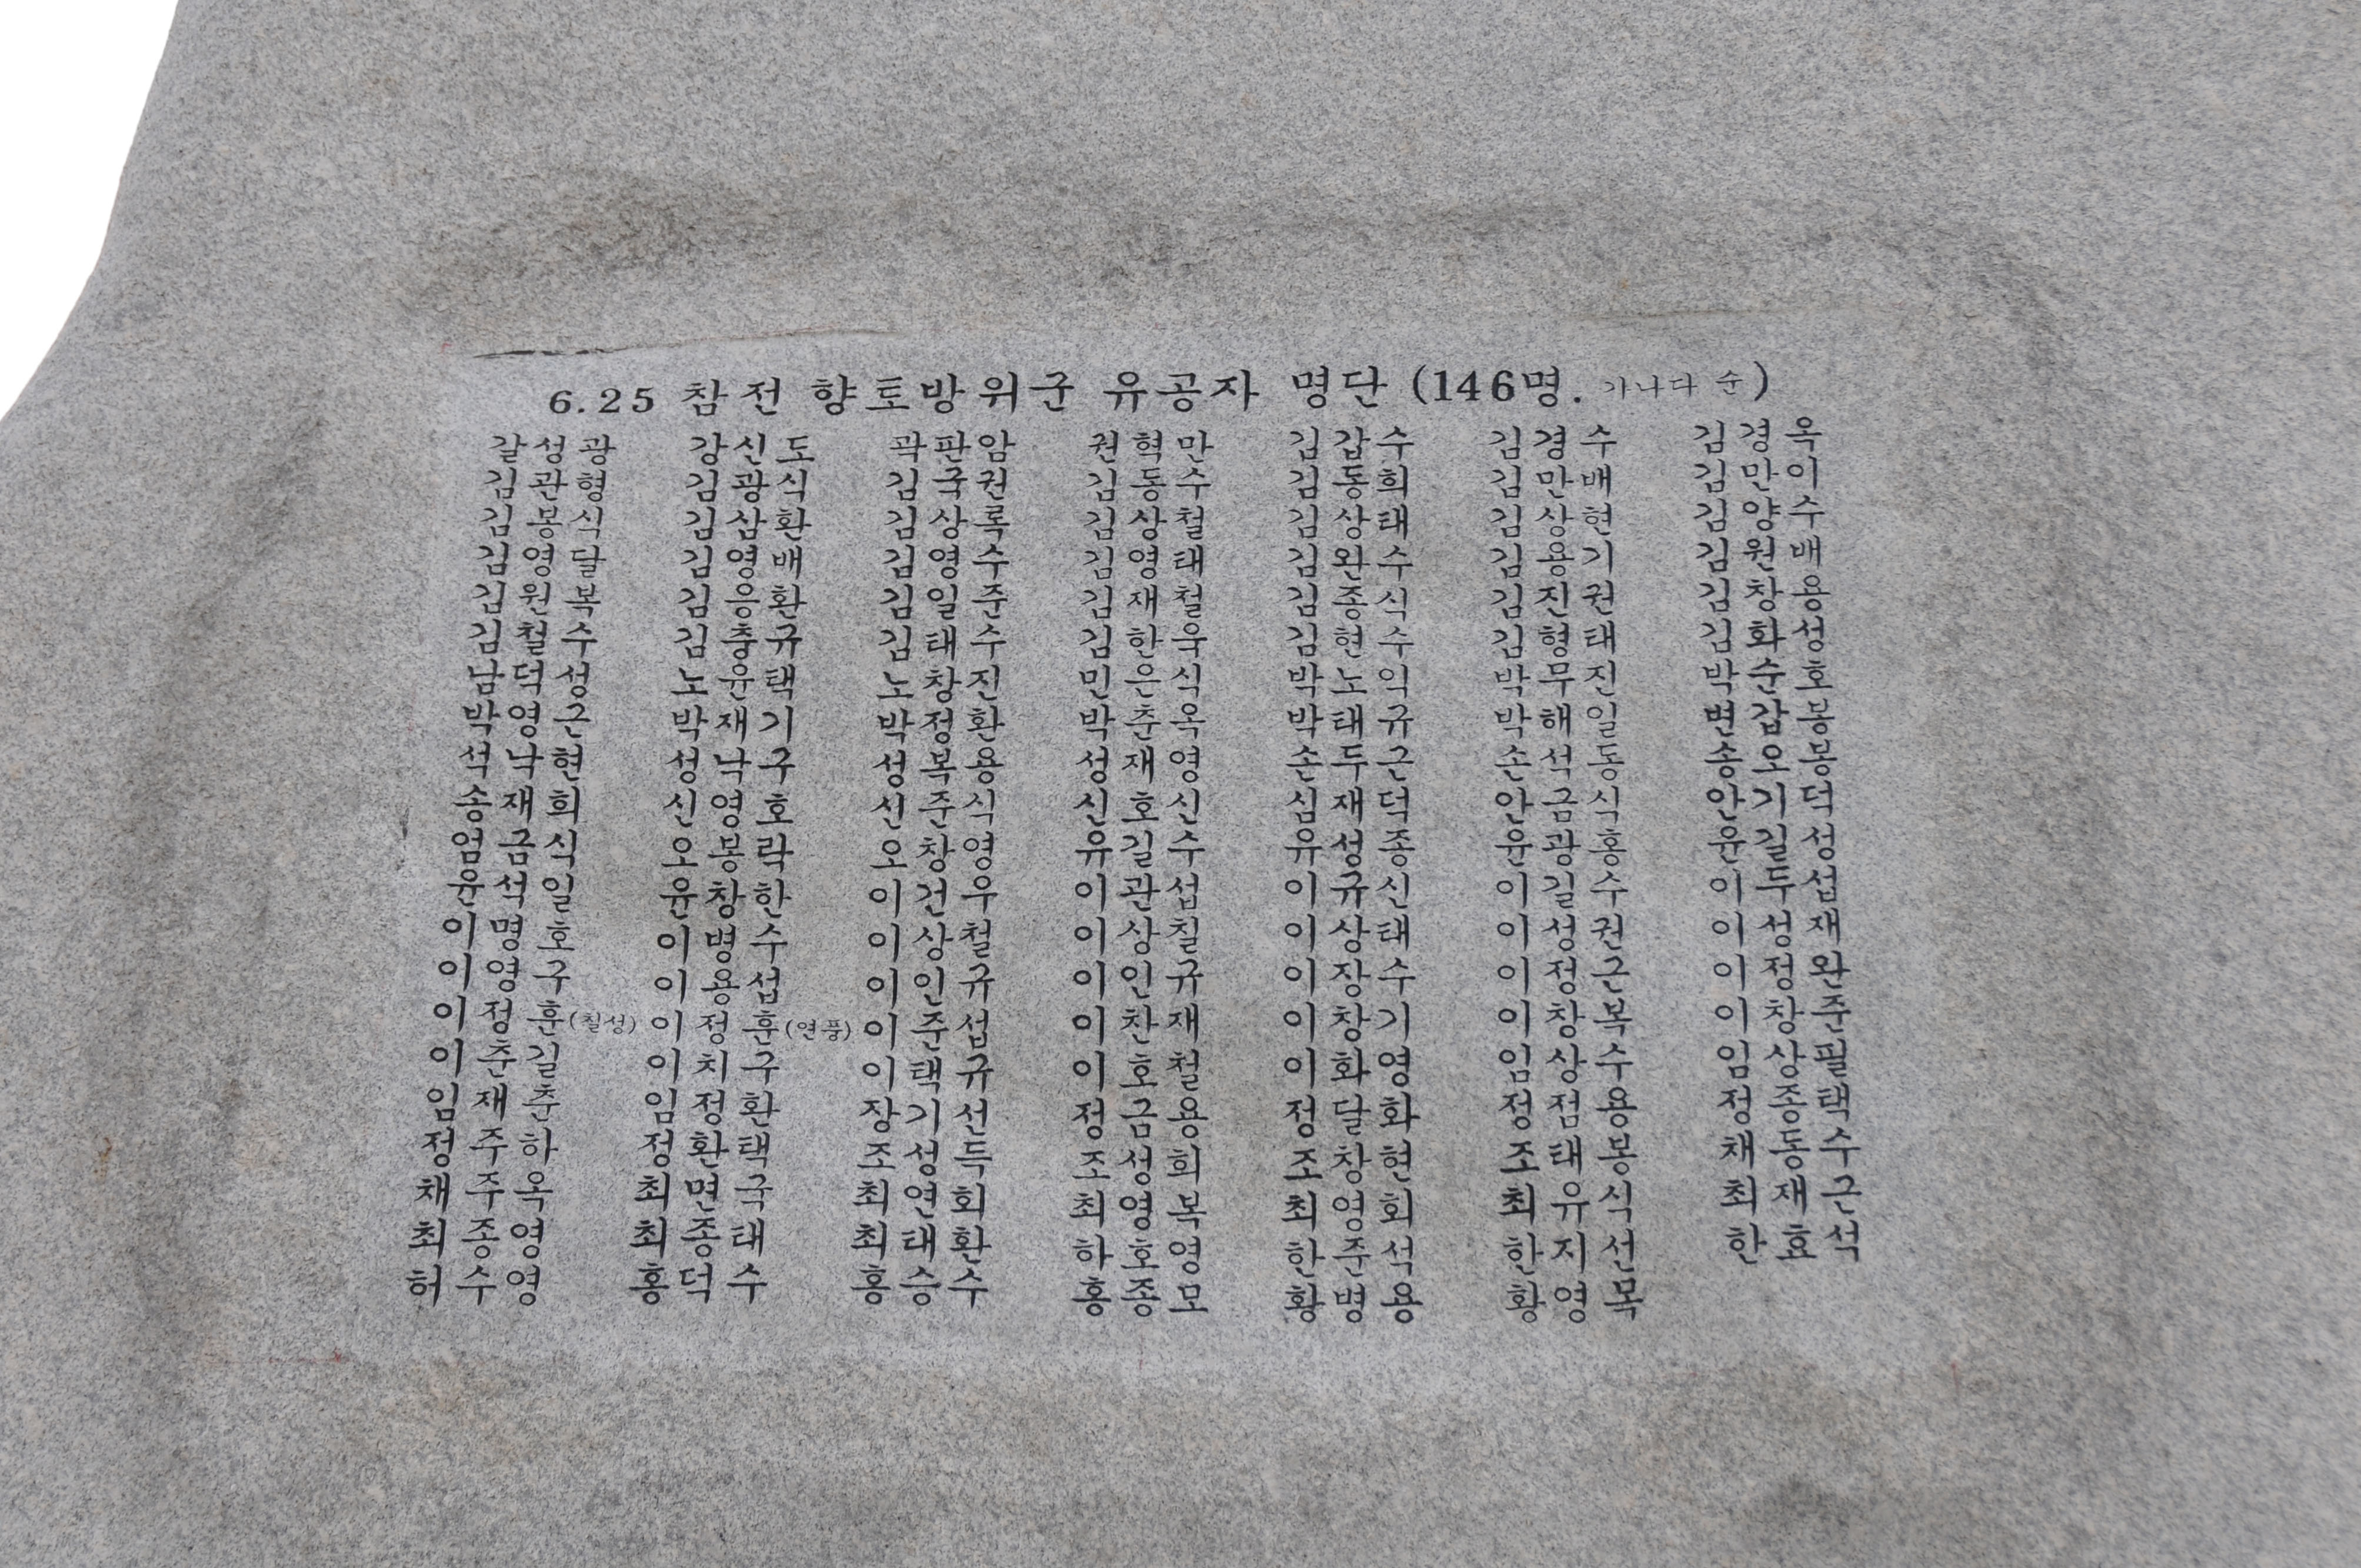 6.25 참전 향토방위군 유공자 명단 (146명. 가나다 순)
갈성광 강신도 곽판암 권혁만 김갑수 김경수 김경옥
김관형 김광식 김국권 김동수 김동희 김만배 김만이
김봉식 김삼환 김상록 김상철 김상태 김상현 김양수
김영달 김영배 김영수 김영태 김완수 김용기 김원배
김원복 김응환 김일준 김재철 김종식 김진권 김창용
김철수 김충규 김태수 김한욱 김현수 김형태 김화성
남덕성 노윤택 노창진 민은식 박노익 박무진 박순호
박영근 박재기 박정환 박춘옥 박태규 박해일 변갑봉
석낙현 성낙구 성복용 성재영 손두근 손석동 송오봉
송재희 신영호 신준식 신호신 심재덕 안금식 안기덕
엄금식 오봉락 오창영 유길수 유성종 윤광홍 윤길성
윤석일 윤창한 이건우 이관섭 이규신 이길수 이두섭
이명호 이병수 이상철 이상칠 이상태 이성권 이성재
이영구 이용섭 이인규 이인규 이장수 이정근 이정완
이정훈(칠성) 이정훈(연풍) 이준섭 이찬재 이창기 이창복 이창준
이춘길 이치구 이택규 이호철 이화영 임상수 임상필
임재춘 임정환 장기선 정금용 정달화 정점용 정종택
정주하 정환택 조성득 조성희 조창현 조태봉 채동수
채주옥 최면국 최연회 최영복 최영회 최유식 최재근
최종영 최종태 최태환 하호영 한준석 한지선 한효석
허수영 홍덕수 홍승수 홍종모 황병용 황영목